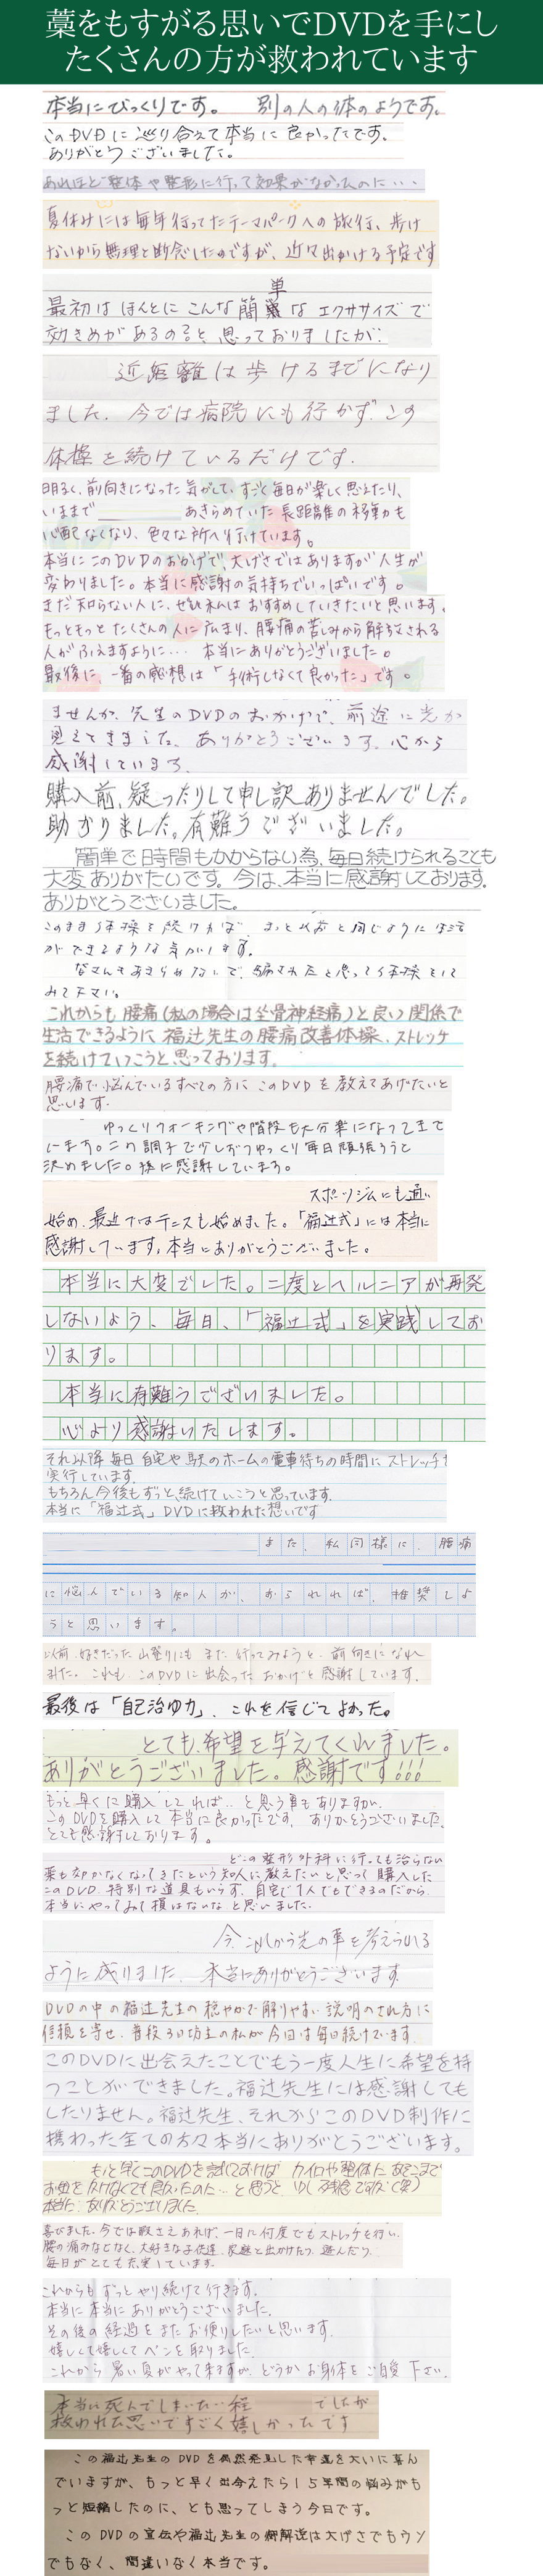 藁をもすがる思いでDVDを手にし
たくさんの方が救われています
本当にびっくりです。 別の人の体のようです。
このDVDに巡り合えて本当に良かったです。
ありがとうございました。
あれほど整体や整形に行って効果がなかったのに・・・
夏休みには毎年行ってたテーマパークへの旅行、歩け
ないから無理と断念したのですが、近々出かける予定です
最初はほんとにこんな簡単なエクササイズで
効きめがあるの?と思っておりましたが、
近距離は歩けるまでになり
ました。今では病院にも行かず、この
体操を続けているだけです。
明るく、前向きになった気がして、すごく毎日が楽しく思えたり、
いままで あきらめていた長距離の移動も
心配なくなり、色々な所へ行けています。
本当にこのDVDのおかげで、大げさではありますが人生が
変わりました。本当に感謝の気持ちでいっぱいです。
まだ知らない人に、ぜひ私はおすすめしていきたいと思います。
もっともっとたくさんの人に広まり、腰痛の苦しみから解放される
人がふえますように・・・ 本当にありがとうございました。
最後に、一番の感想は「手術しなくて良かった」です。
ませんが、先生のDVDのおかげで、前途に光が
見えてきました。ありがとうございます。心から
感謝しています。
購入前、疑ったりして申し訳ありませんでした。
助かりました。有難うございました。
簡単で時間もかからない為、毎日続けられることも
大変ありがたいです。今は、本当に感謝しております。
ありがとうございました。
このまま体操を続ければ、きっと以前と同じように生活
ができるような気がします。
なさんもあきらめないで、騙されたと思って体操をして
みて下さい。
これからも腰痛(私の場合は坐骨神経痛)と良い関係で
生活できるように福辻先生の腰痛改善体操、ストレッチ
を続けていこうと思っております。
腰痛で悩んでいるすべての方にこのDVDを教えてあげたいと
思います。
ゆっくりウォーキングや階段も大分楽になってきて
います。この調子で少しずつゆっくり毎日頑張ろうと
決めました。様に感謝しています。
スポーツジムにも通い
始め、最近ではテニスも始めました。「福辻式」には本当に
感謝しています。本当にありがとうございました。
本当に大変でした。二度とヘルニアが再発
しないよう、毎日、「福辻式」を実践してお
ります。
本当に有難うございました。
心より感謝いたします。
それ以降毎日自宅や駅のホームの電車待ちの時間にストレッチを
実行しています。
もちろん今後もずっと続けていこうと思っています。
本当に「福辻式」DVDに救われた想いです
また、私同様に、腰痛
に悩んでいる知人が、おられれば、推奨しよ
うと思います。
以前、好きだった山登りにもまた行ってみようと、前向きになれ
ました。これも、このDVDに出会ったおかげと感謝しています。
最後は「自己治ゆ力」、これを信じてよかった。
とても希望を与えてくれました。
ありがとうございました。感謝です!!!
もっと早くに購入していれば・・と思う事もありますが、
このDVDを購入して本当に良かったです。ありがとうございました。
とても感謝しております。
どこの整形外科に行っても治らない
薬も効かなくなってきたという知人に教えたいと思って購入した
このDVD、特別な道具もいらず、自宅で1人でもできるのだから
本当にやってみて損はないなと思いました。
今、これから先の事を考えられる
ように成りました。本当にありがとうございます。
DVDの中の福辻先生の穏やかで解りやすい説明のされ方に
信頼を寄せ、普段3日坊主の私が今日は毎日続けています。
このDVDに出会えたことでもう一度人生に希望を持
つことができました。福辻先生には感謝しても
したりません。福辻先生、それからこのDVD制作に
携わった全ての方々本当にありがとうございます。
もっと早くこのDVDを試しておけば、カイロや整体にあそこまで
お金をかけなくても良かったのに・・と思うと、少し残念ですが(笑)
本当に、ありがとうございました。
喜びました。今では暇さえあれば、一日に何度でもストレッチを行い、
腰の痛みなどなく、大好きな子供達、家庭と出かけたり、遊んだり、
毎日がとても充実しています。
これからもずっとやり続けて行きます。
本当に本当にありがとうございました。
その後の経過をまたお便りしたいと思います。
嬉しくて嬉しくてペンを取りました。
これから暑い夏がやって来ますが、どうかお身体をご自愛下さい。
本当に死んでしまいたい程 でしたが
救われた思いですごく嬉しかったです
この福辻先生のDVDを偶然発見した幸運を大いに喜ん
でいますが、もっと早く出会えたら15年間の悩みがも
っと短縮したのに、とも思ってしまう今日です。
このDVDの宣伝や福辻先生の御解説は大げさでもウソ
でもなく、間違いなく本当です。